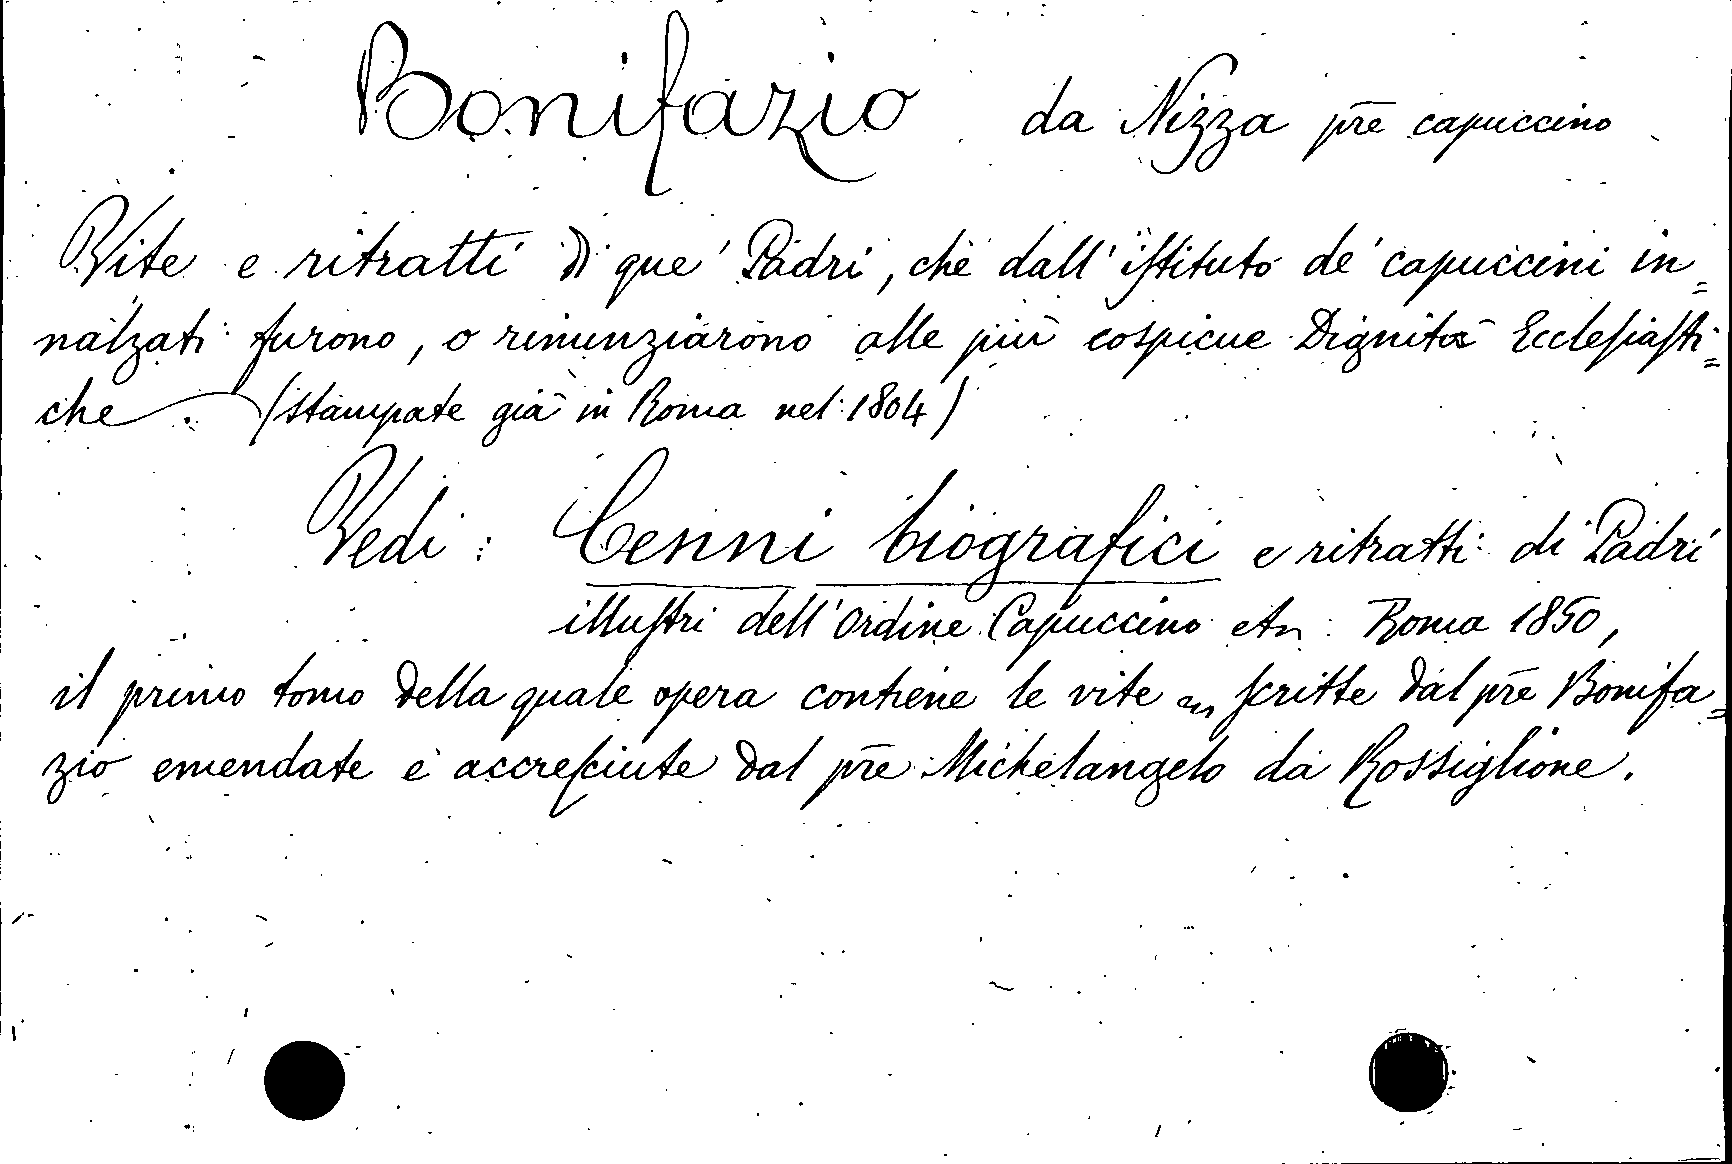 Bonifazio da Nizza pre capuccino
Vite e ritratti di que' Padri, che dall' istituto de' capuccini in=
nalzati furono, o rinunziarono alle più cospicue Dignità Ecclesiasti=
che. (stampate già in Roma nel 1804)
Vedi: Cenni biografici e ritratti di Padri
illustri dell'Ordine Capuccino etc. Roma 1850,
il primo tomo della quale opera contiene le vite scritte dal pre Bonifa=
zio emendate e accresciute dal pre Michelangelo da Rossiglione.